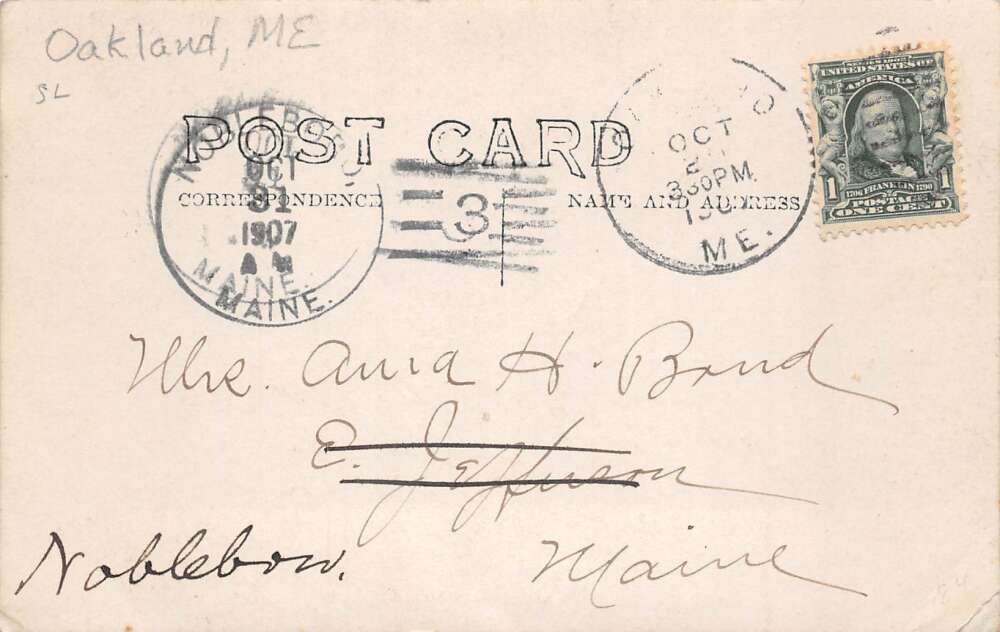 Oakland, ME
SL
POST CARD
CORRESPONDENCE
NAME AND ADDRESS
OCT
31
1907
A M
MAINE.
MAINE.
3
OCT
330PM
ME.
SERIES 1902
UNITED STATES OF
AMERICA
1706 FRANKLIN 1790
1 POSTAGE
ONE CENT 1
Mrs. Anna H. Bond
E. Jefferson
Noblebow.
Maine